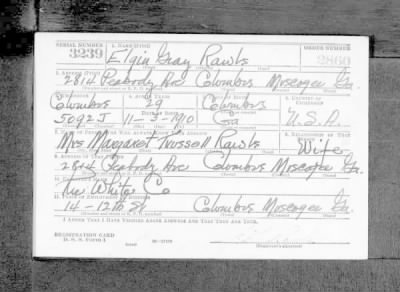 SERIAL NUMBER 1. NAME (Print) ORDER NUMBER
3239 Elgin Gray Rawls 2860
2. ADDRESS (Print)
2814 Peabody Ave Columbus Muscogee Ga.
3. TELEPHONE 4. AGE IN YEARS 5. PLACE OF BIRTH 6. COUNTRY OF CITIZENSHIP
Columbus 29 Columbus
5092J 11-3-1910 Ga U.S.A.
7. NAME OF PERSON WHO WILL ALWAYS KNOW YOUR ADDRESS 8. RELATIONSHIP OF THAT PERSON
Mrs Margaret Russell Rawls Wife
9. ADDRESS OF THAT PERSON
2814 Peabody Ave Columbus Muscogee Ga.
10. EMPLOYER'S NAME
White Co
11. PLACE OF EMPLOYMENT OR BUSINESS
14-12th St Columbus Muscogee Ga.
I AFFIRM THAT I HAVE VERIFIED ABOVE ANSWERS AND THAT THEY ARE TRUE.
REGISTRATION CARD
D. S. S. Form 1